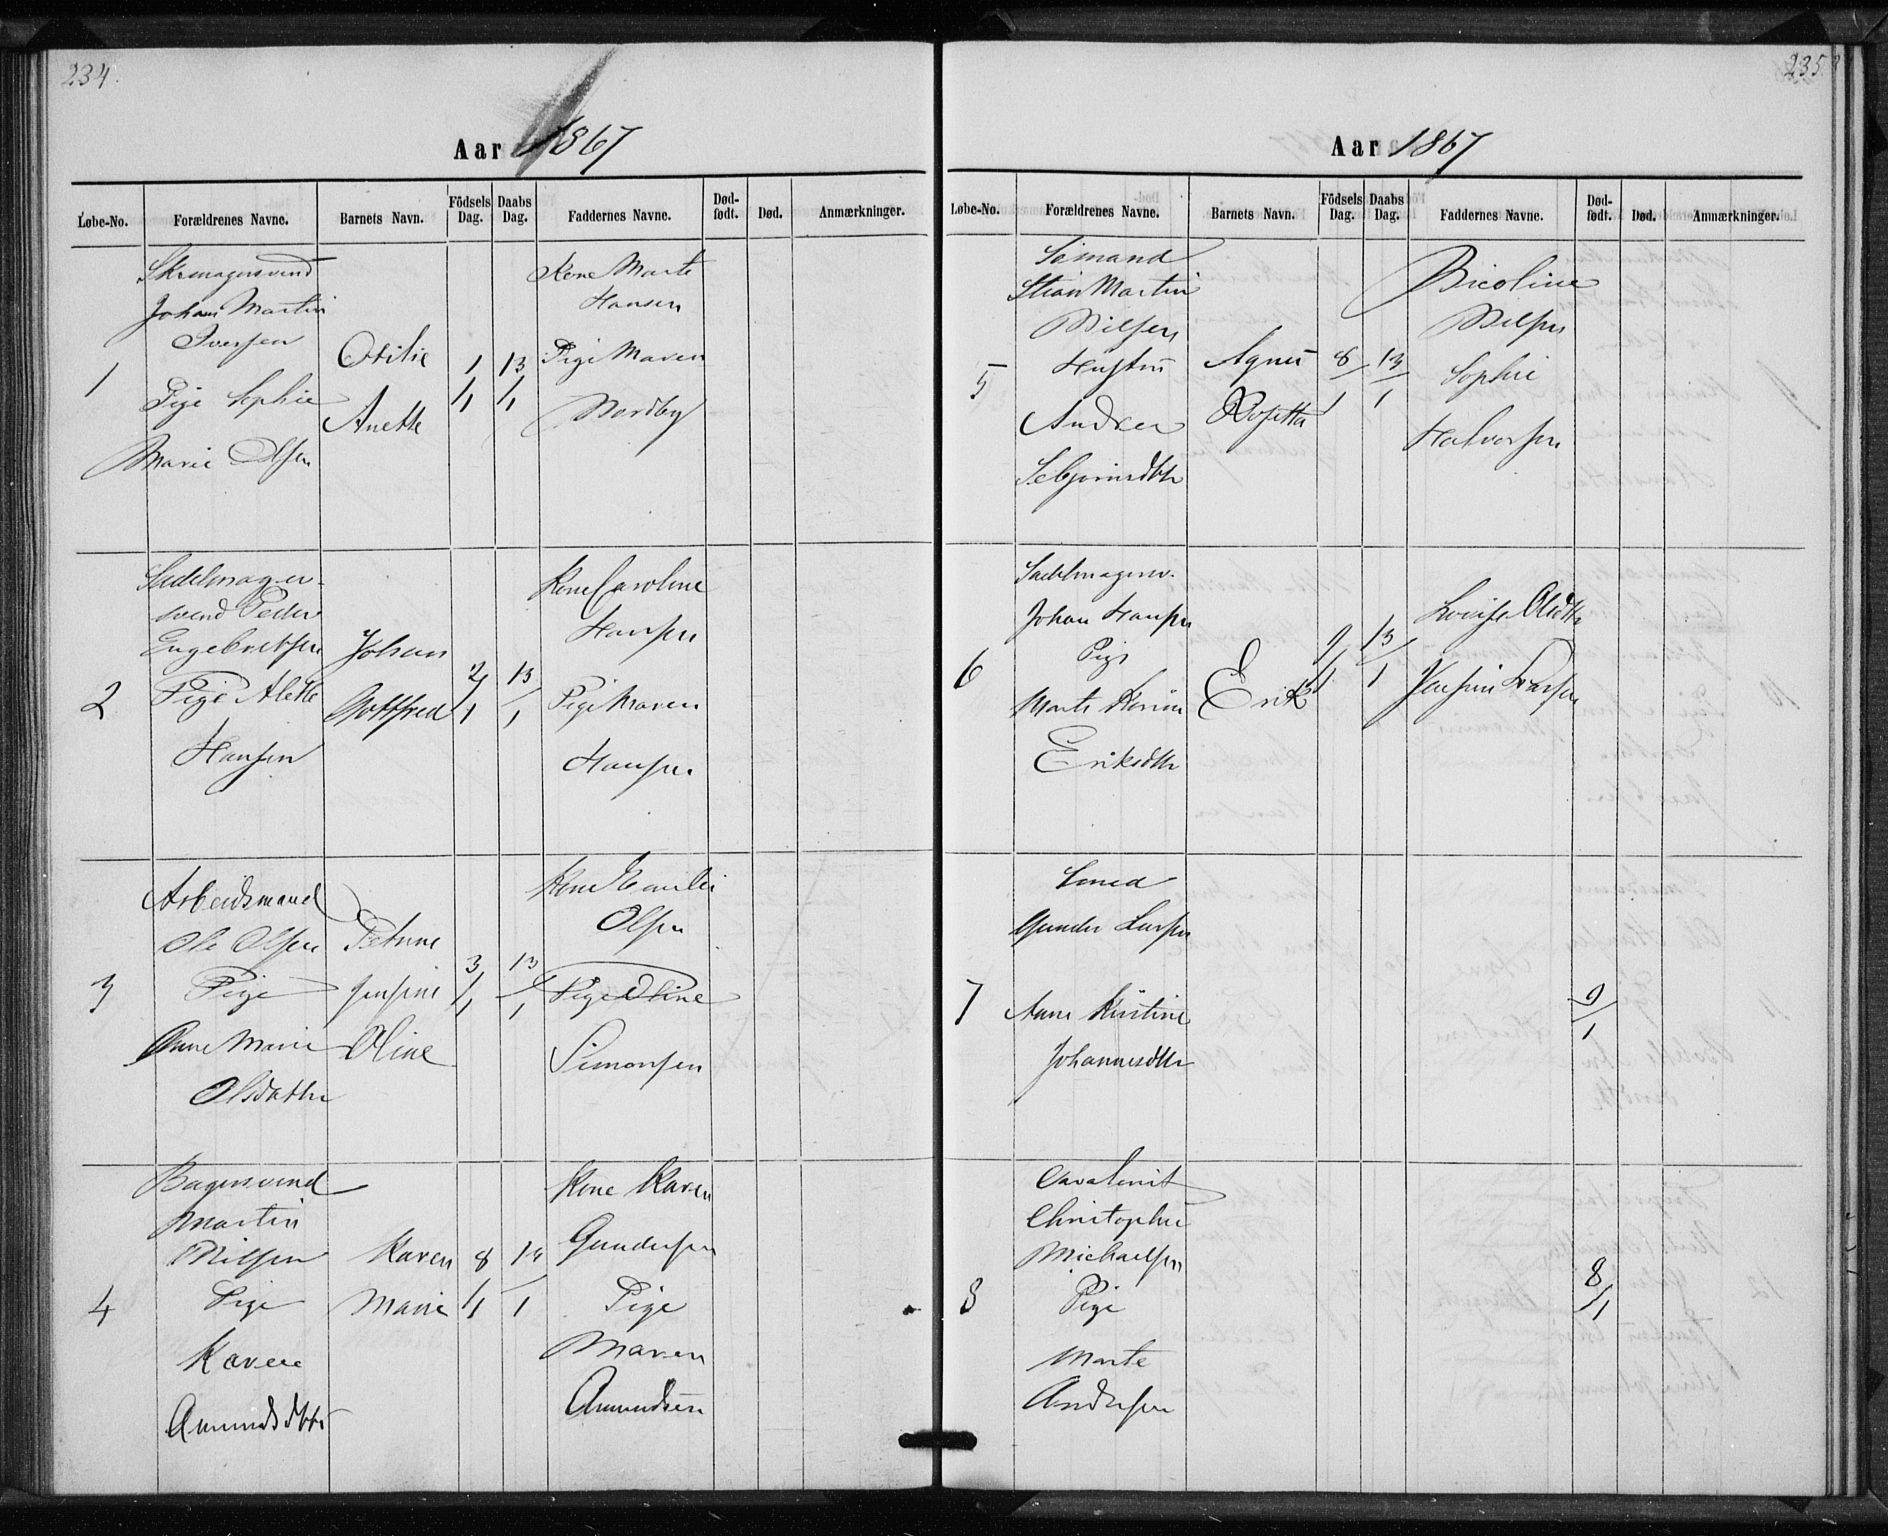 234.
Aar 1867
Løbe-No. Forældrenes Navne. Barnets Navn. Födsels Dag. Daabs Dag. Faddernes Navne. Død-født. Død. Anmærkninger.
1
Skomagersvend
Johan Martin
Iversen
Pige Sophie
Marie Olsen
Otilie
Anette
1/1
13/1
Kone Marte
Hansen
Pige Maren
Nordby
2
Sadelmager-
svend Peder
Engebretsen
Pige Alette
Hansen
Johan
Gottfred
2/1
13/1
Kone Caroline
Hansen
Pige Maren
Hansen
3
Arbeidsmand
Ole Olsen
Pige
Anne Marie
Olsdatter
Petrine
Jensine
Oline
3/1
13/1
Kone Emilie
Olsen
Pige Oline
Simonsen
4
Bagersvend
Martin
Nilsen
Pige
Karen
Amundsdtter
Karen
Marie
8/1
14/1
Kone Karen
Gundersen
Pige
Maren
Amundsen
235
Aar 1867
Løbe-No. Forældrenes Navne. Barnets Navn. Födsels Dag. Daabs Dag. Faddernes Navne. Død-født. Død. Anmærkninger.
5
Sømand
Stian Martin
Nilsen
Hustru
Andrea
Agnes
Rosetta
8/1
13/1
Nicoline
Nilsen
Sophie
Halvorsen
6
Sadelmagersv.
Johan Hansen
Pige
Marte Karine
Eriksdtr
Erik
9/1
13/1
Lovise Olsdtr
Jensine Larsen
7
Gunder Larsen
Anne Kirstine
Johannesdtr
9/1
8
Cavalerist
Christopher
Michaelsen
Pige
Marte
Andersen
8/1